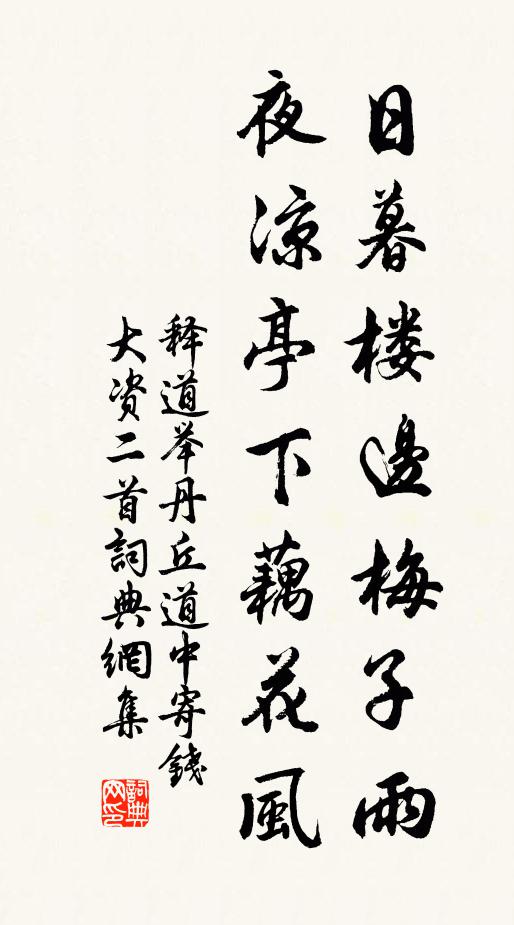 日暮楼邊梅子雨
夜涼亭下藕花風
释道举丹丘道中寄錢
大资二首詞典網集
詞典
网印